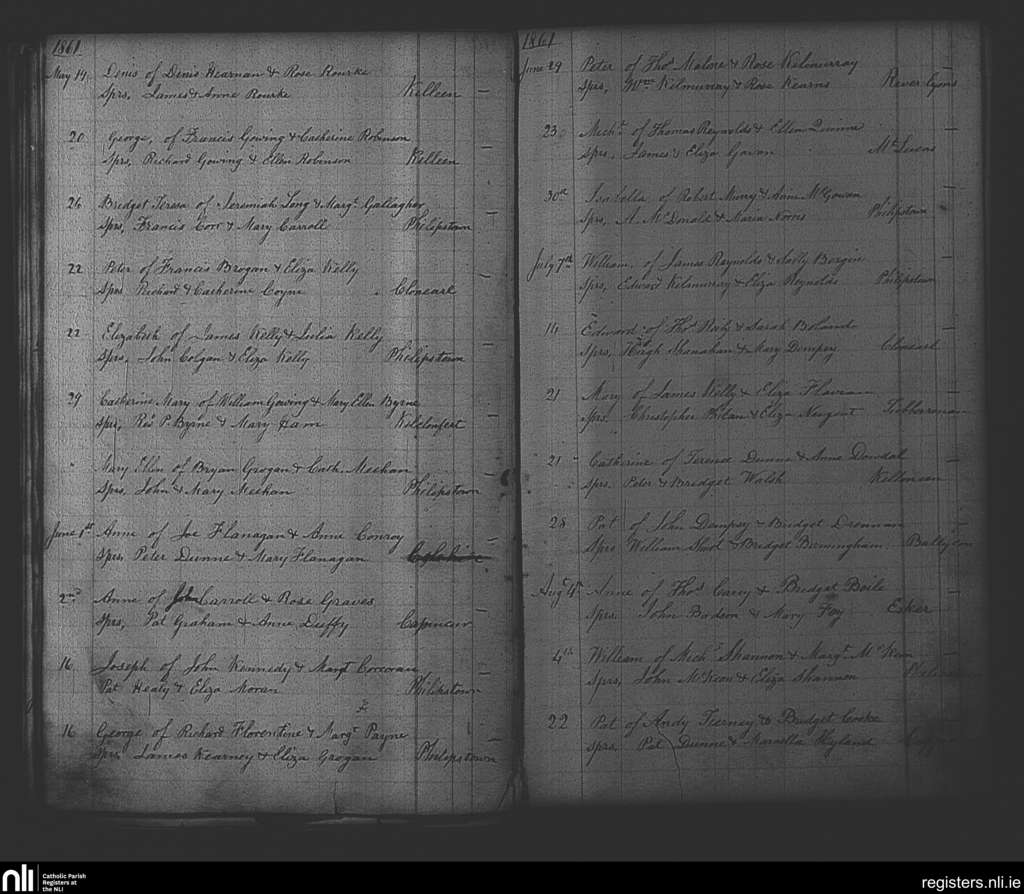 1861
May 14 Denis of Denis Hearnan & Rose Rourke
Sprs, James & Anne Rourke Killeen
20 George, of Francis Gowing & Catherine Robinson
Sprs, Richard Gowing & Ellen Robinson Killeen
26 Bridget Teresa of Jeremiah Long & Margt Gallagher
Sprs, Francis Corr & Mary Carroll Philipstown
22 Peter of Francis Brogan & Eliza Kelly
Sprs Richard & Catherine Coyne Cloneark
22 Elizabeth of James Kelly & Julia Kelly
Sprs, John Colgan & Eliza Kelly Philipstown
29 Catherine Mary of William Gowing & Mary Ellen Byrne
Sprs, Revd P. Byrne & Mary Ham Kilclonfert
" Mary Ellen of Bryan Grogan & Cath. Meehan
Sprs, John & Mary Meehan Philipstown
June 1st Anne of Joe Flanagan & Anne Conroy
Sprs, Peter Dunne & Mary Flanagan
2nd Anne of John Carroll & Rose Graves
Sprs, Pat Graham & Anne Duffy Capincur
16 Joseph of John Kennedy & Margt Corcoran
Pat Healy & Eliza Moran Philipstown
16 George of Richard Florentine & Margt Payne
Sprs James Kearney & Eliza Grogan Philipstown
1861
June 29 Peter of Thos Malone & Rose Kilmurray
Sprs, Wm Kilmurray & Rose Kearns River Lyons
23 Michl of Thomas Reynolds & Ellen Quinn
Sprs, James & Eliza Gavan Mt Lucas
30th Isabella of Robert Murry & Anne McGowan
Sprs, A. McDonald & Maria Norris Philipstown
July 7th William of James Reynolds & Sally Bergin
Sprs, Edward Kilmurray & Eliza Reynolds Philipstown
14 Edward of Thos & Sarah Boland
Sprs, Hugh Shanahan & Mary Dempsy Cloneark
21 Mary of James Kelly & Eliza
Sprs. Christopher & Eliza Nugent
21 Catherine of Terence Dunne & Anne Dowdal
Sprs. Peter & Bridget Walsh Killoneen
28 Pat of John Dempsy & Bridget Drennan
Sprs William Short & Bridget Birmingham
Augt 4th Anne of Thos Carey & Bridget Boile
Sprs. John & Mary Foy Esker
4th William of Michl Shannon & Margt McKeon
Sprs, John McKeon & Eliza Shannon
22 Pat of Andy Teerney & Bridget Cooke
Sprs. Pat Dunne & Marcella Hyland
nli
Catholic Parish
Registers at
the NLI
registers.nli.ie